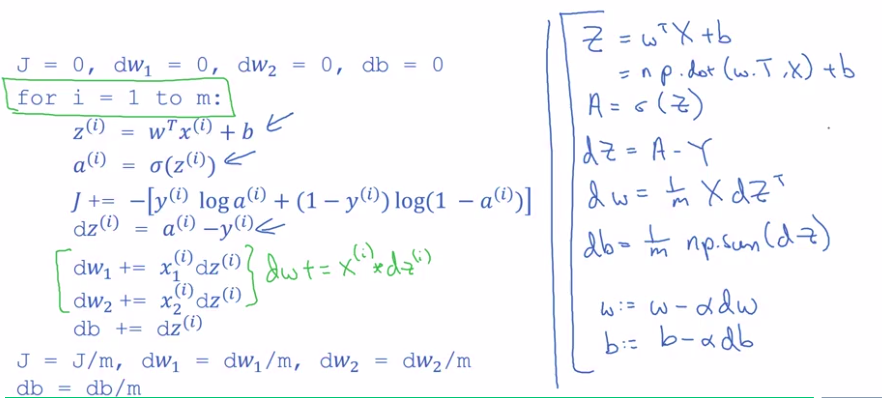 J = 0, dw₁ = 0, dw₂ = 0, db = 0
for i = 1 to m:
z⁽ⁱ⁾ = wᵀx⁽ⁱ⁾ + b
a⁽ⁱ⁾ = σ(z⁽ⁱ⁾)
J += −[y⁽ⁱ⁾ log a⁽ⁱ⁾ + (1 − y⁽ⁱ⁾) log(1 − a⁽ⁱ⁾)]
dz⁽ⁱ⁾ = a⁽ⁱ⁾ − y⁽ⁱ⁾
dw₁ += x₁⁽ⁱ⁾ dz⁽ⁱ⁾
dw₂ += x₂⁽ⁱ⁾ dz⁽ⁱ⁾
dw += x⁽ⁱ⁾ * dz⁽ⁱ⁾
db += dz⁽ⁱ⁾
J = J/m, dw₁ = dw₁/m, dw₂ = dw₂/m
db = db/m
Z = wᵀX + b
= np.dot(w.T, X) + b
A = σ(Z)
dZ = A − Y
dw = 1/m X dZᵀ
db = 1/m np.sum(dZ)
w := w − αdw
b := b − αdb